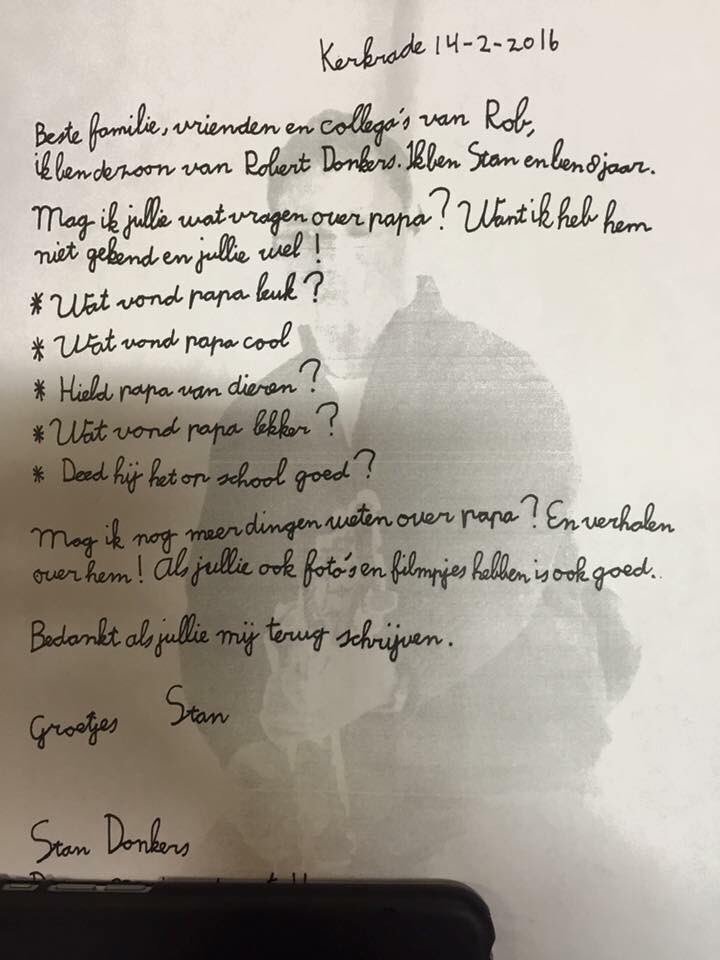 Kerkrade 14-2-2016
Beste familie, vrienden en collega's van Rob,
ik ben de zoon van Robert Donkers. Ik ben Stan en ben 8 jaar.
Mag ik jullie wat vragen over papa? Want ik heb hem
niet gekend en jullie wel!
* Wat vond papa leuk?
* Wat vond papa cool
* Hield papa van dieren?
* Wat vond papa lekker?
* Deed hij het op school goed?
Mag ik nog meer dingen weten over papa? En verhalen
over hem! Als jullie ook foto's en filmpjes hebben is ook goed.
Bedankt als jullie mij terug schrijven.
Groetjes Stan
Stan Donkers